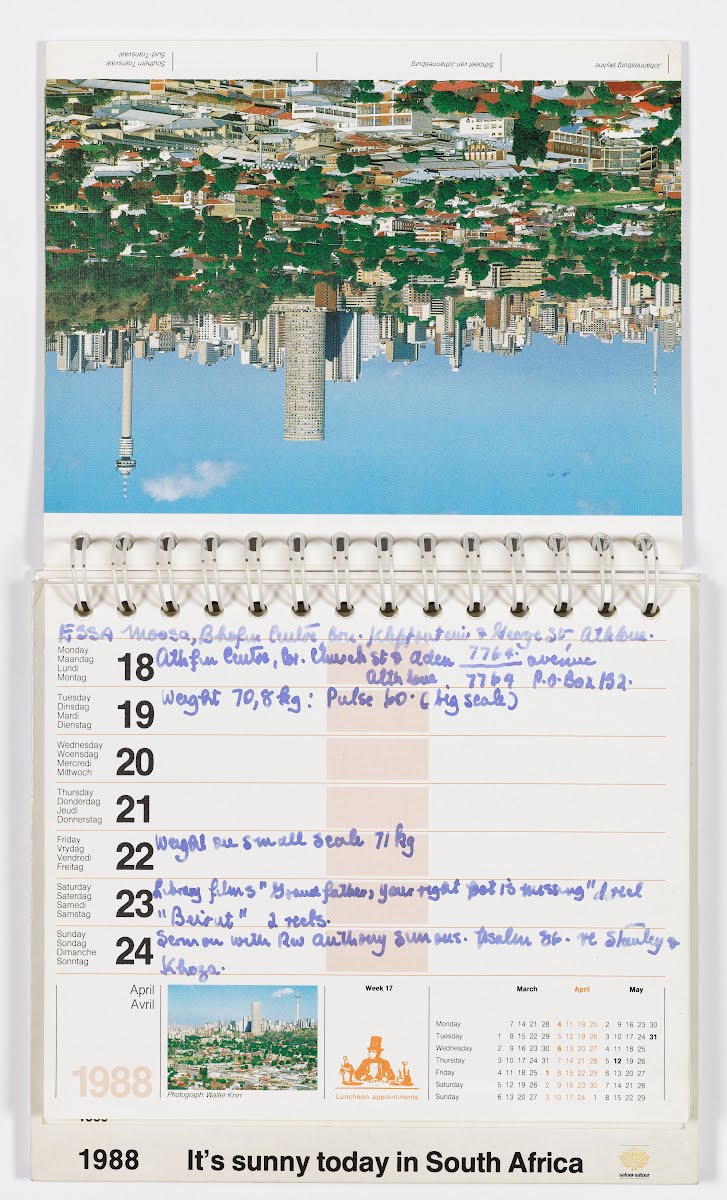 Southern Transvaal
Suid-Transvaal
Silhoeët van Johannesburg
Johannesburg skyline
ESSA Moosa, Centre Klipfontein & George St Athlone.
Monday
Maandag
Lundi
Montag
18
Athfin Centre, Cr. Church St & Aden 7764. avenue
Athlone 7769 P.O. Box 192.
Tuesday
Dinsdag
Mardi
Dienstag
19
Weight 70,8 kg: Pulse 60. (big scale)
Wednesday
Woensdag
Mercredi
Mittwoch
20
Thursday
Donderdag
Jeudi
Donnerstag
21
Friday
Vrydag
Vendredi
Freitag
22
Weight on small scale 71 kg
Saturday
Saterdag
Samedi
Samstag
23
Library films "Grandfather, your right foot is missing" 1 reel
"Beirut" 2 reels.
Sunday
Sondag
Dimanche
Sonntag
24
Sermon with Rev Anthony Simons. Psalm 86. re Stanley &
Khoza.
April
Avril
1988
Photograph: Walter Knirr
Week 17
Luncheon appointments
March April May
Monday 7 14 21 28 4 11 18 25 2 9 16 23 30
Tuesday 1 8 15 22 29 5 12 19 26 3 10 17 24 31
Wednesday 2 9 16 23 30 6 13 20 27 4 11 18 25
Thursday 3 10 17 24 31 7 14 21 28 5 12 19 26
Friday 4 11 18 25 1 8 15 22 29 6 13 20 27
Saturday 5 12 19 26 2 9 16 23 30 7 14 21 28
Sunday 6 13 20 27 3 10 17 24 1 8 15 22 29
1988 It's sunny today in South Africa
satoer·satour